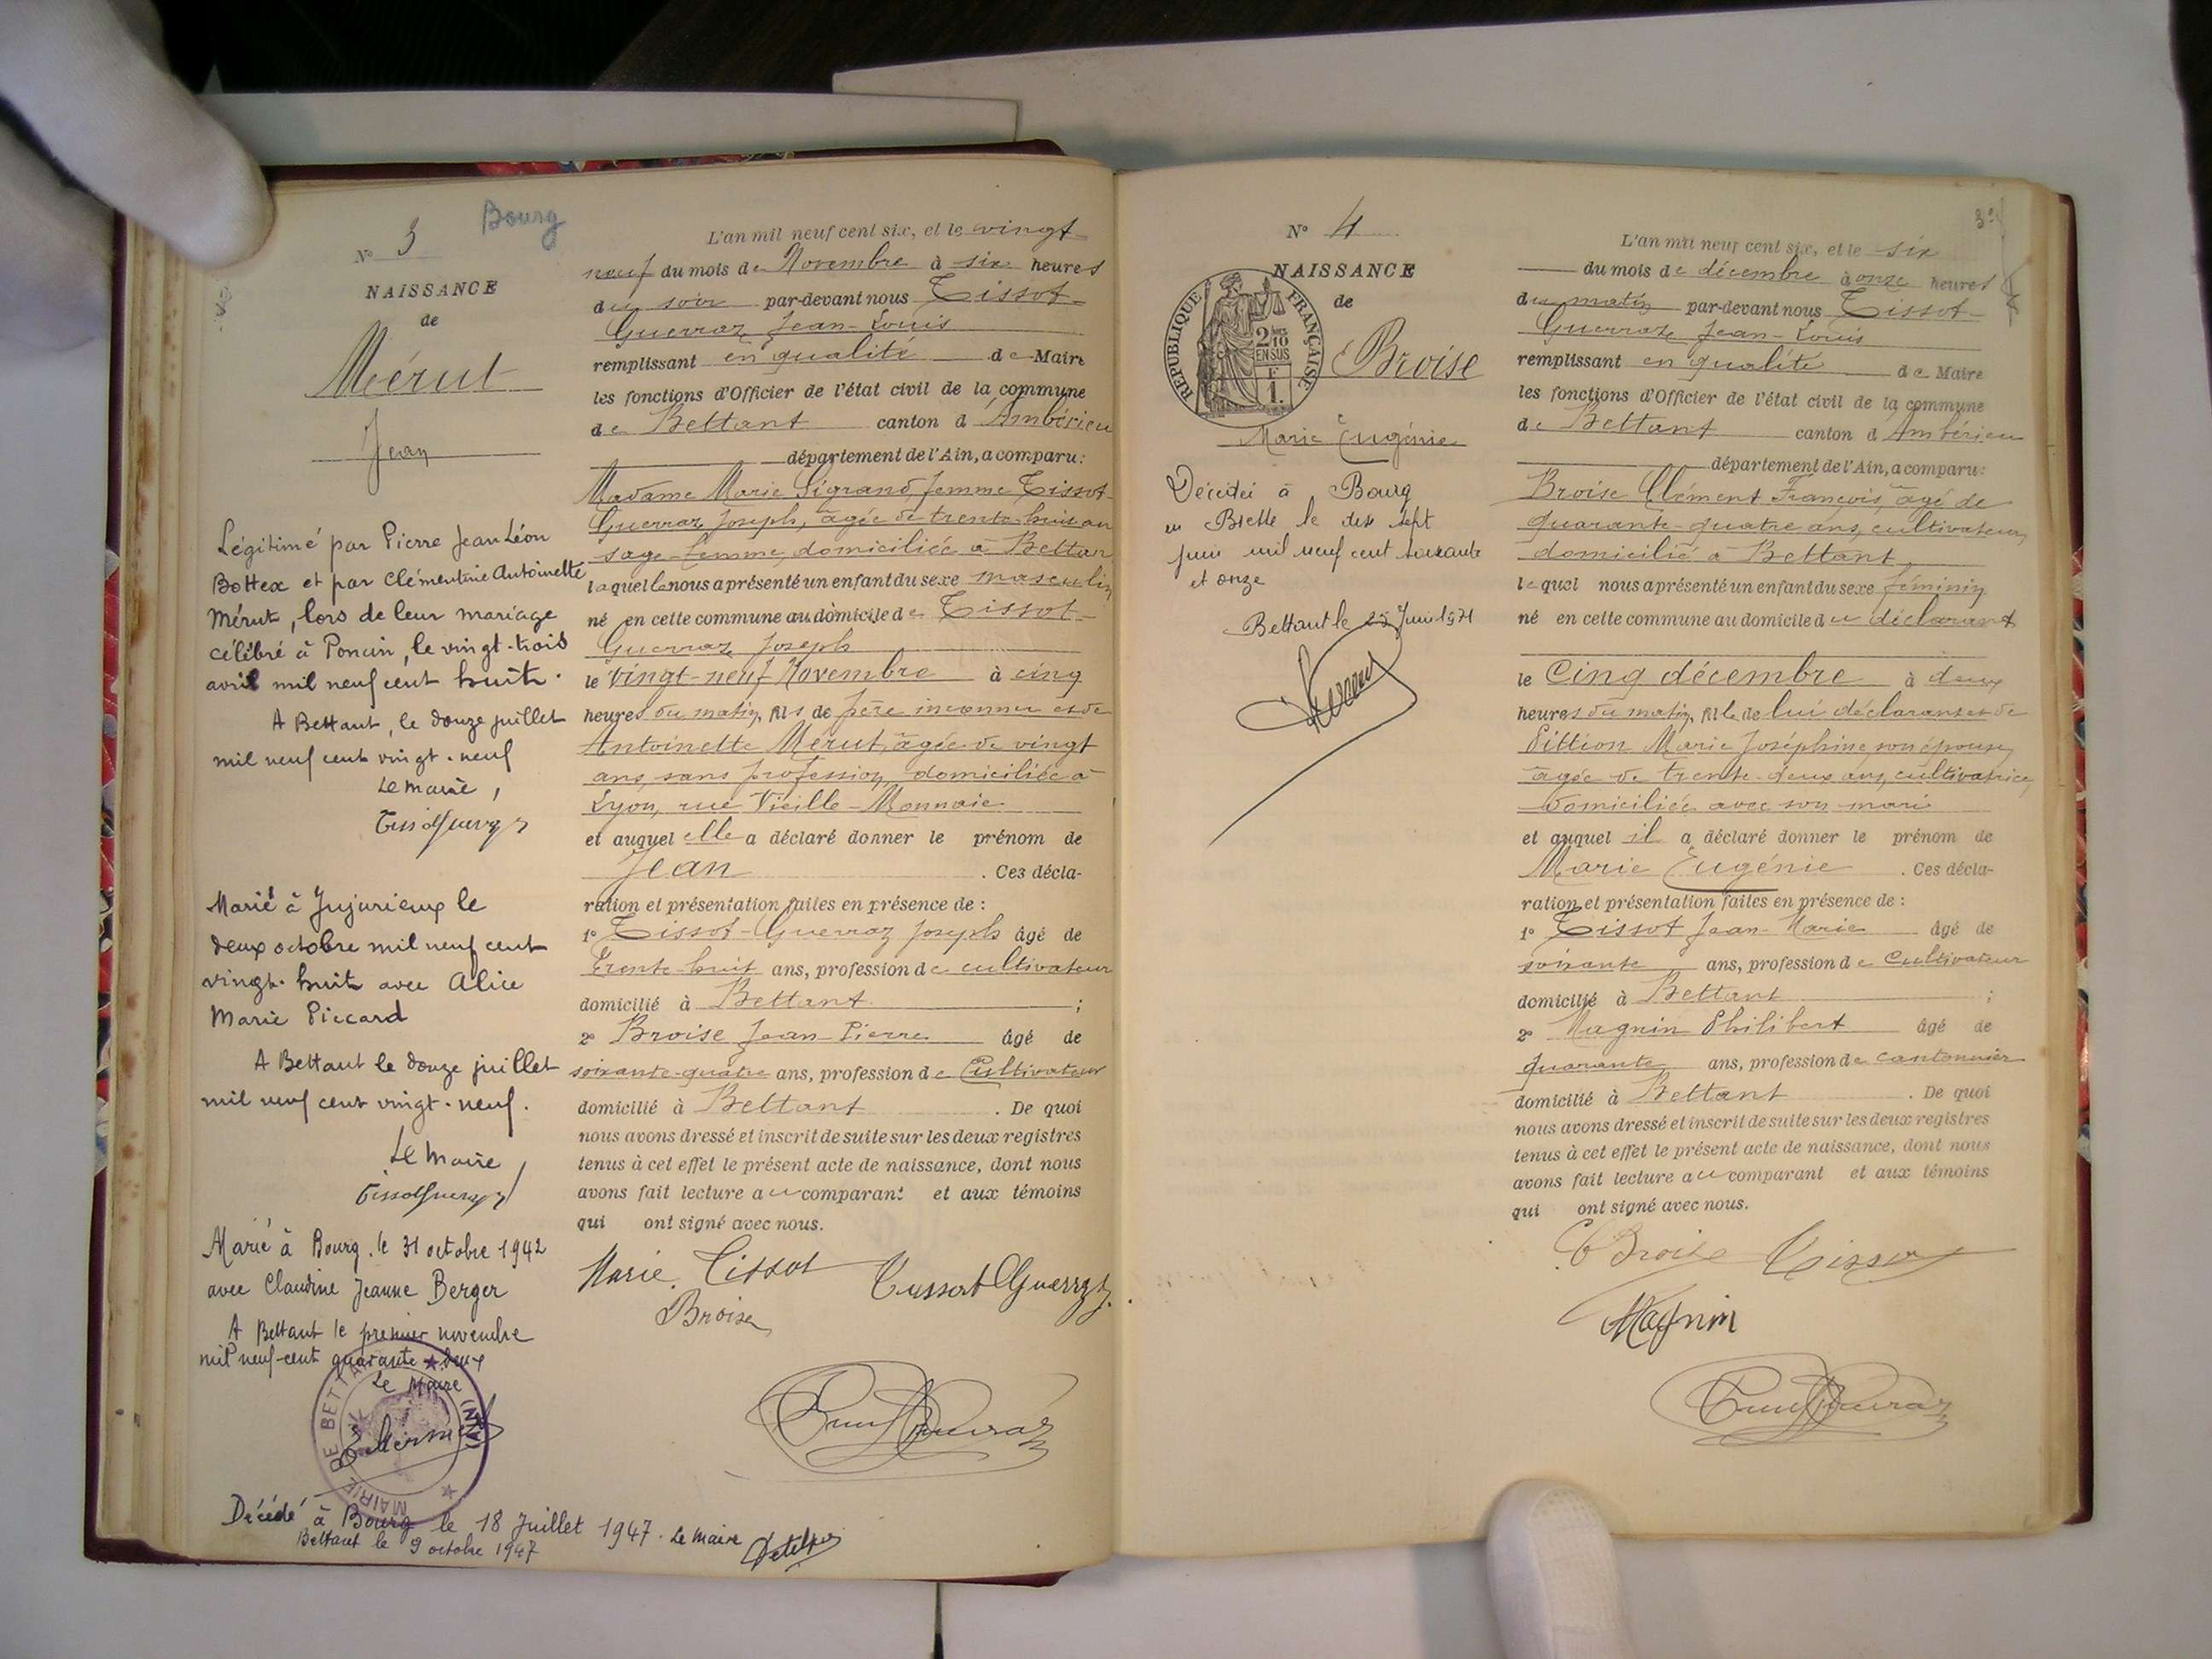 Bourg
N° 3
NAISSANCE
de
Mérut
Jean
Légitimé par Pierre Jean Léon
Bottex et par Clémentine Antoinette
Mérut, lors de leur mariage
célébré à Poncin, le vingt-trois
avril mil neuf cent huit.
A Bettant, le douze juillet
mil neuf cent vingt-neuf
Le maire,
Tissot Guerraz
Marié à Jujurieux le
deux octobre mil neuf cent
vingt-huit avec Alice
Marie Piccard
A Bettant le douze juillet
mil neuf cent vingt-neuf.
Le Maire
Tissot Guerraz
Marié à Bourg, le 31 octobre 1942
avec Claudine Jeanne Berger
A Bettant le premier novembre
mil neuf-cent quarante-deux
Le Maire
MAIRIE DE BETTANT (AIN)
Décédé à Bourg le 18 Juillet 1947. Le Maire
Bettant le 9 octobre 1947
L'an mil neuf cent six, et le vingt
neuf du mois de Novembre à six heures
du soir par-devant nous Tissot-
Guerraz Jean-Louis
remplissant en qualité de Maire
les fonctions d'Officier de l'état civil de la commune
de Bettant canton d'Ambérieu
département de l'Ain, a comparu:
Madame Marie Sigrand, femme Tissot-
Guerraz Joseph, âgée de trente-huit an
sage-femme, domiciliée à Bettan
laquelle nous a présenté un enfant du sexe masculin
né en cette commune au domicile de Tissot-
Guerraz Joseph
le vingt-neuf Novembre à cinq
heures du matin, fils de père inconnu et de
Antoinette Mérut, âgée de vingt
ans, sans profession, domiciliée à
Lyon, rue Vieille-Monnaie
et auquel elle a déclaré donner le prénom de
Jean . Ces décla-
ration et présentation faites en présence de :
1° Tissot-Guerraz Joseph âgé de
trente-huit ans, profession de cultivateur
domicilié à Bettant ;
2° Broise Jean-Pierre âgé de
soixante-quatre ans, profession de Cultivateur
domicilié à Bettant . De quoi
nous avons dressé et inscrit de suite sur les deux registres
tenus à cet effet le présent acte de naissance, dont nous
avons fait lecture au comparant et aux témoins
qui ont signé avec nous.
Marie Tissot Tissot Guerraz
Broise
N° 4
NAISSANCE
de
RÉPUBLIQUE FRANÇAISE
2/10 EN SUS
F 1.
Broise
Marie Eugénie
Décédée à Bourg
en Bresse le dix sept
juin mil neuf cent soixante
et onze
Bettant le 25 Juin 1971
3
L'an mil neuf cent six, et le six
du mois de décembre à onze heures
du matin par-devant nous Tissot-
Guerraz Jean-Louis
remplissant en qualité de Maire
les fonctions d'Officier de l'état civil de la commune
de Bettant canton d'Ambérieu
département de l'Ain, a comparu:
Broise Clément François, âgé de
quarante-quatre ans, cultivateur,
domicilié à Bettant
lequel nous a présenté un enfant du sexe féminin
né en cette commune au domicile du déclarant
le Cinq décembre à deux
heures du matin, fille de lui déclarant et de
Pittion Marie Joséphine, son épouse,
âgée de trente-deux ans, cultivatrice,
domiciliée avec son mari
et auquel il a déclaré donner le prénom de
Marie Eugénie . Ces décla-
ration et présentation faites en présence de :
1° Tissot Jean-Marie âgé de
soixante ans, profession de Cultivateur
domicilié à Bettant ;
2° Magnin Philibert âgé de
quarante ans, profession de cantonnier
domicilié à Bettant . De quoi
nous avons dressé et inscrit de suite sur les deux registres
tenus à cet effet le présent acte de naissance, dont nous
avons fait lecture au comparant et aux témoins
qui ont signé avec nous.
C Broise Tissot
Magnin